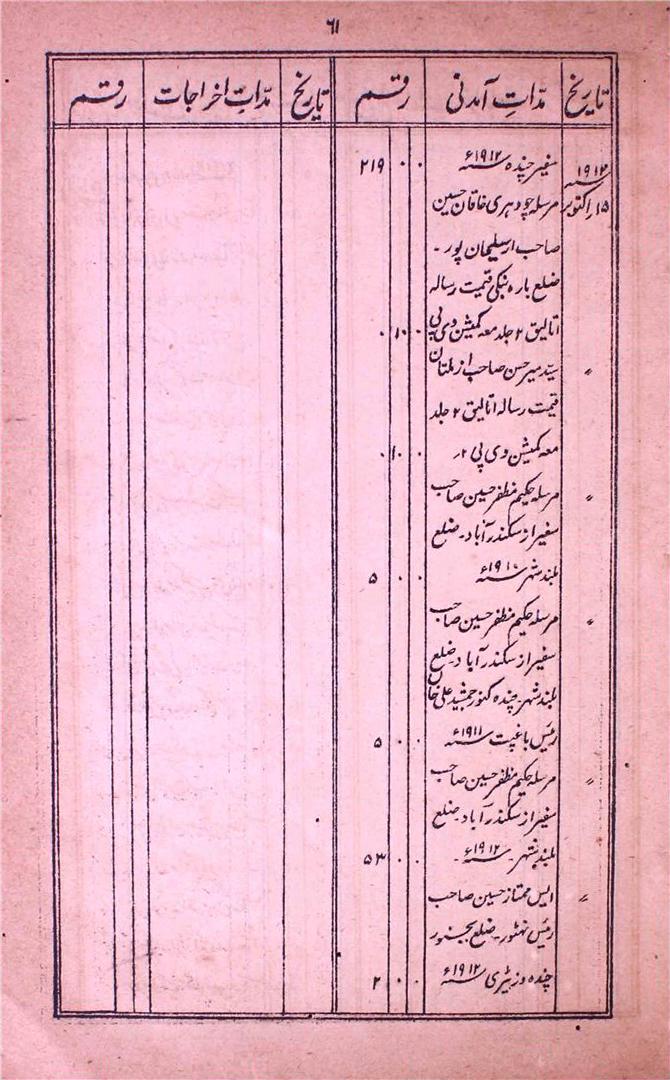 ٦١
تاریخ مدّاتِ آمدنی رقم تاریخ مدّاتِ اخراجات رقم
۱۹۱۲ء سفیر چندہ ۱۹۱۲ء ۰ ۰ ۲۱۹
۱۵ اکتوبر مرسلہ چودہری خاقان حسین
صاحب از سلیمان پور۔
ضلع بارہ بنکی قیمت رسالہ
اتالیق ۲ جلد معہ کمیشن وی پی ۰ ۱۰ ۰
〃 سیّد میر حسن صاحب از ملتان
قیمت رسالہ اتالیق ۲ جلد
معہ کمیشن وی پی ۲ر ۰ ۱۰ ۰
〃 مرسلہ حکیم مظفر حسین صاحب
سفیر از سکندرآباد۔ ضلع
بلند شہر ۱۹۱۰ء ۰ ۰ ۵
〃 مرسلہ حکیم مظفر حسین صاحب
سفیر از سکندرآباد۔ ضلع
بلند شہر۔ چندہ کنور جمشید علی خاں
رئیس باغپت ۱۹۱۱ء ۰ ۰ ۵
〃 مرسلہ حکیم مظفر حسین صاحب
سفیر از سکندرآباد۔ ضلع
بلند شہر۔ ۱۹۱۲ء۔ ۰ ۰ ۵۳
〃 ایس ممتاز حسین صاحب
رئیس نہٹور۔ ضلع بجنور
چندہ وزیٹری ۱۹۱۲ء ۰ ۰ ۲